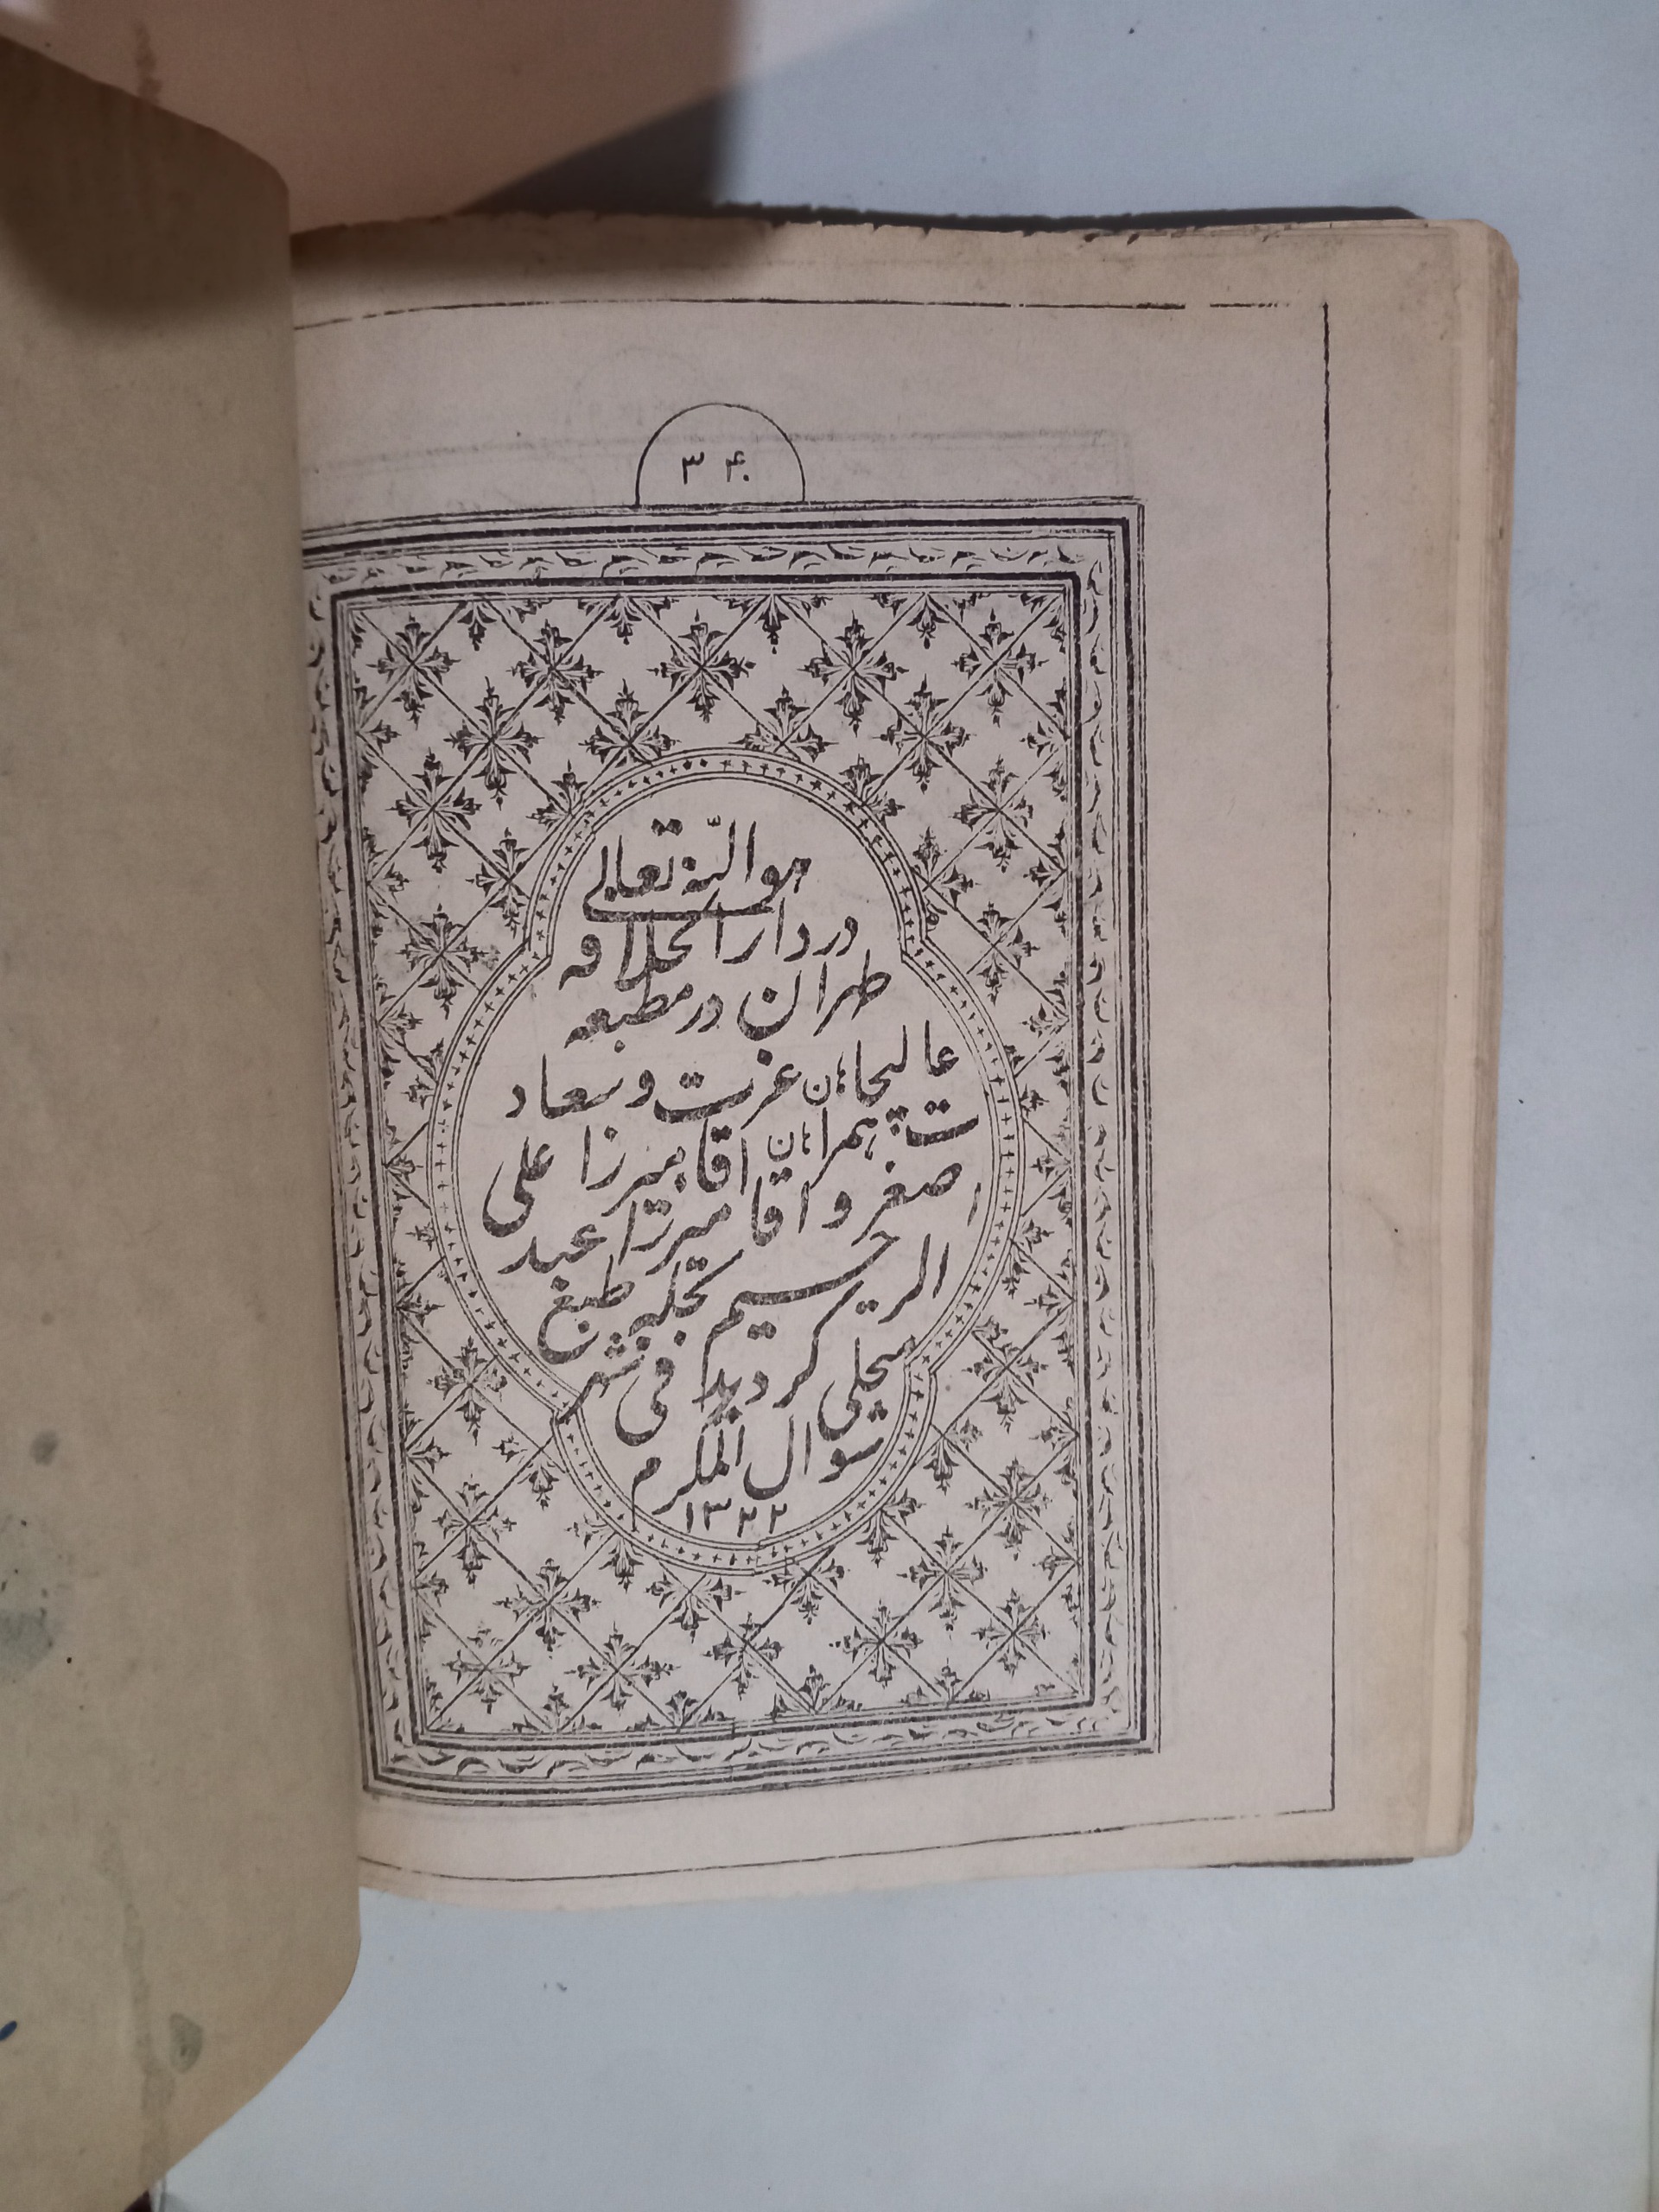 ۳۴۰
هو الله تعالی
در دار الخلافه
طهران در مطبعه
عالیجاهان عزت و سعاد
ت همراهان اقا میرزا علی
اصغر و اقا میرزا عبد
الرحیم بحلیه طبع
محلی کردید فی شهر
شوال المکرم
۱۳۲۲